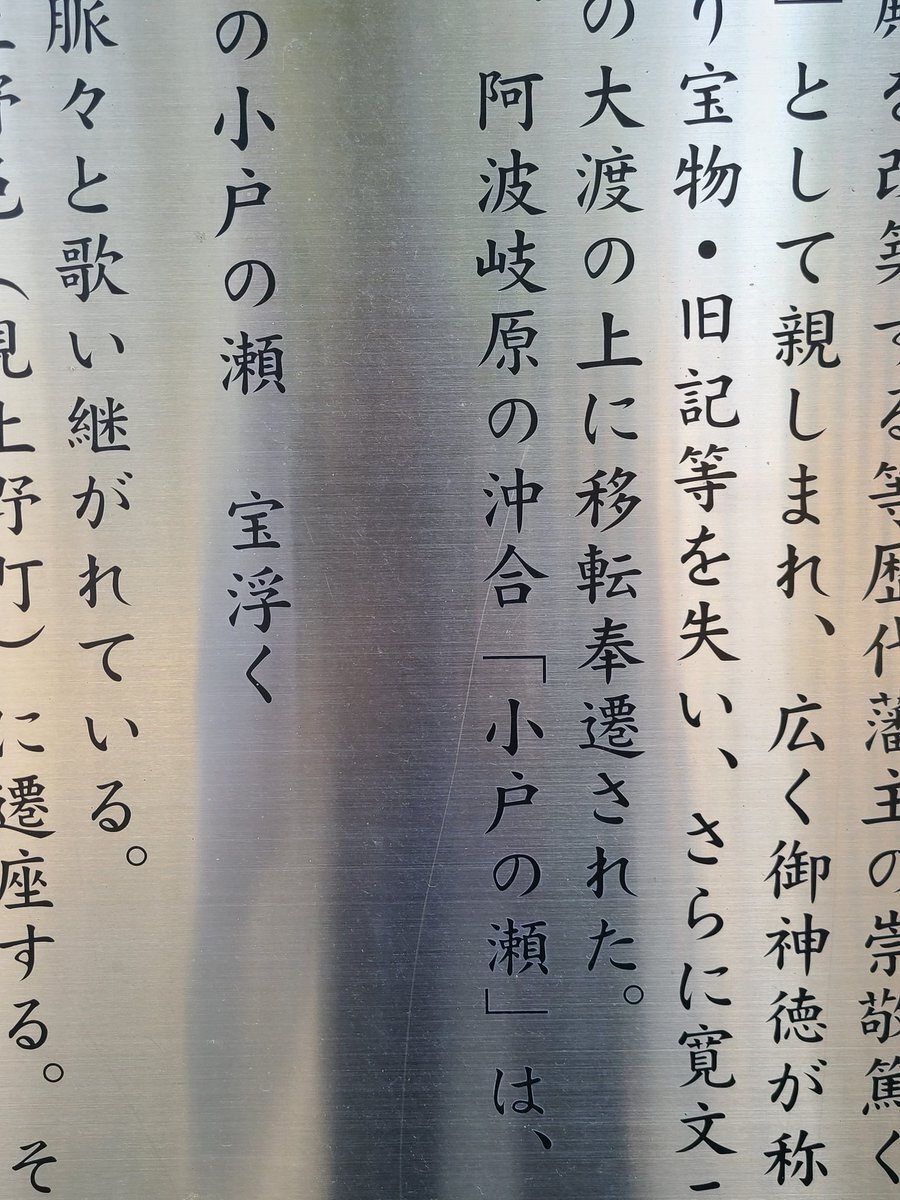 る改築する等歴代藩主の崇敬篤く
」として親しまれ、広く御神徳が称
り宝物・旧記等を失い、さらに寛文
の大渡の上に移転奉遷された。
阿波岐原の沖合「小戸の瀬」は、
の小戸の瀬　宝浮く
脈々と歌い継がれている。
上野町）に遷座する。そ